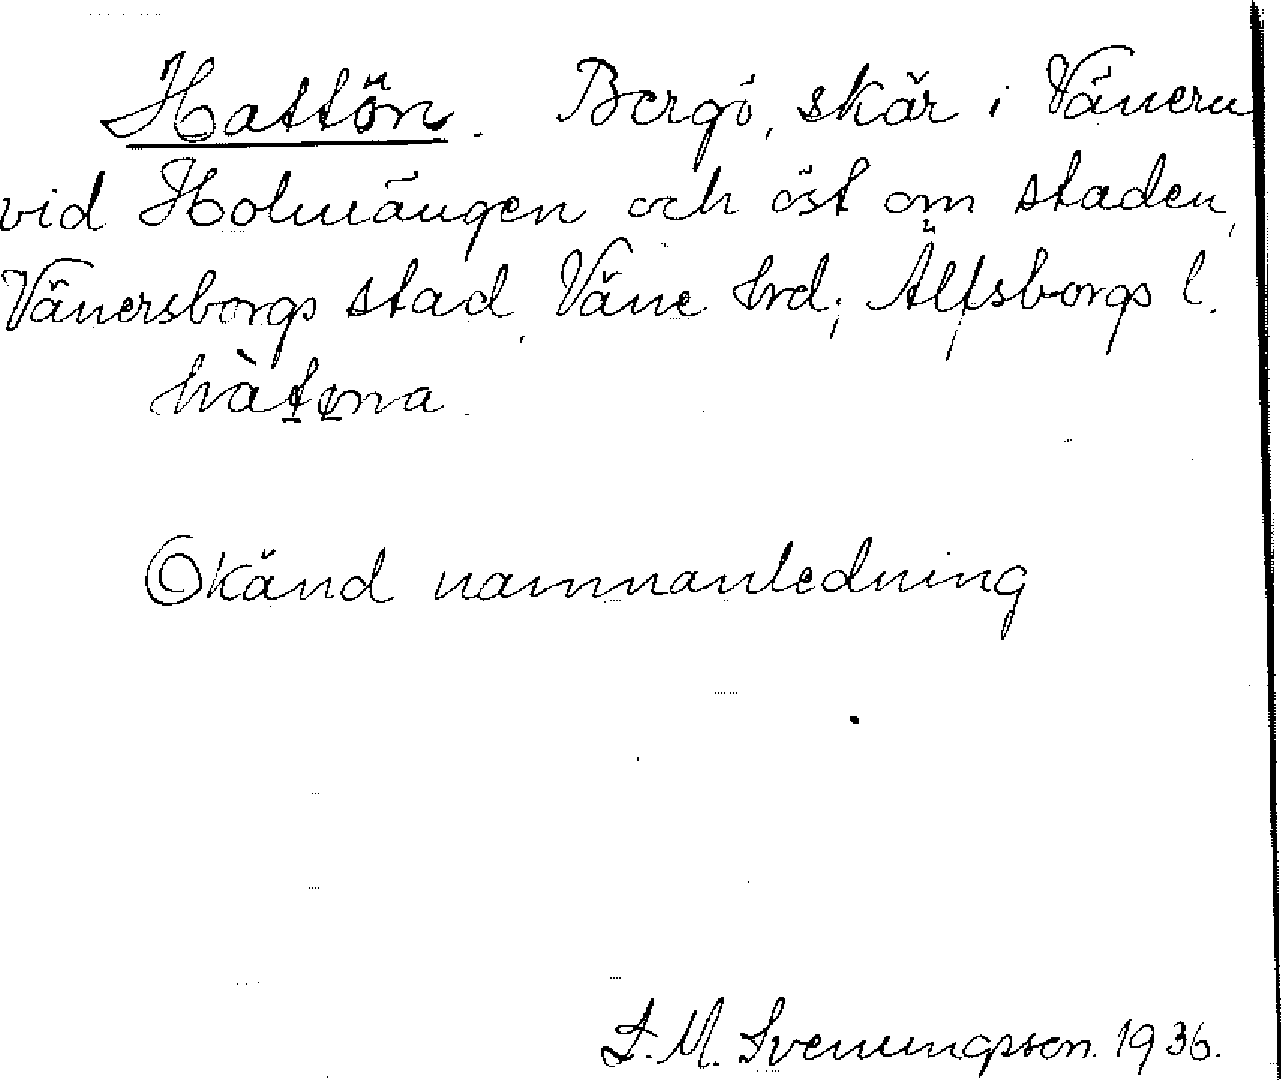 Hattön. Bergö, skär i Vänern
vid Holmängen och öst om staden,
Vänersborgs stad, Väne hrd, Älfsborgs l.
hàtøna.
Okänd namnanledning
L. M. Svenungsson. 1936.